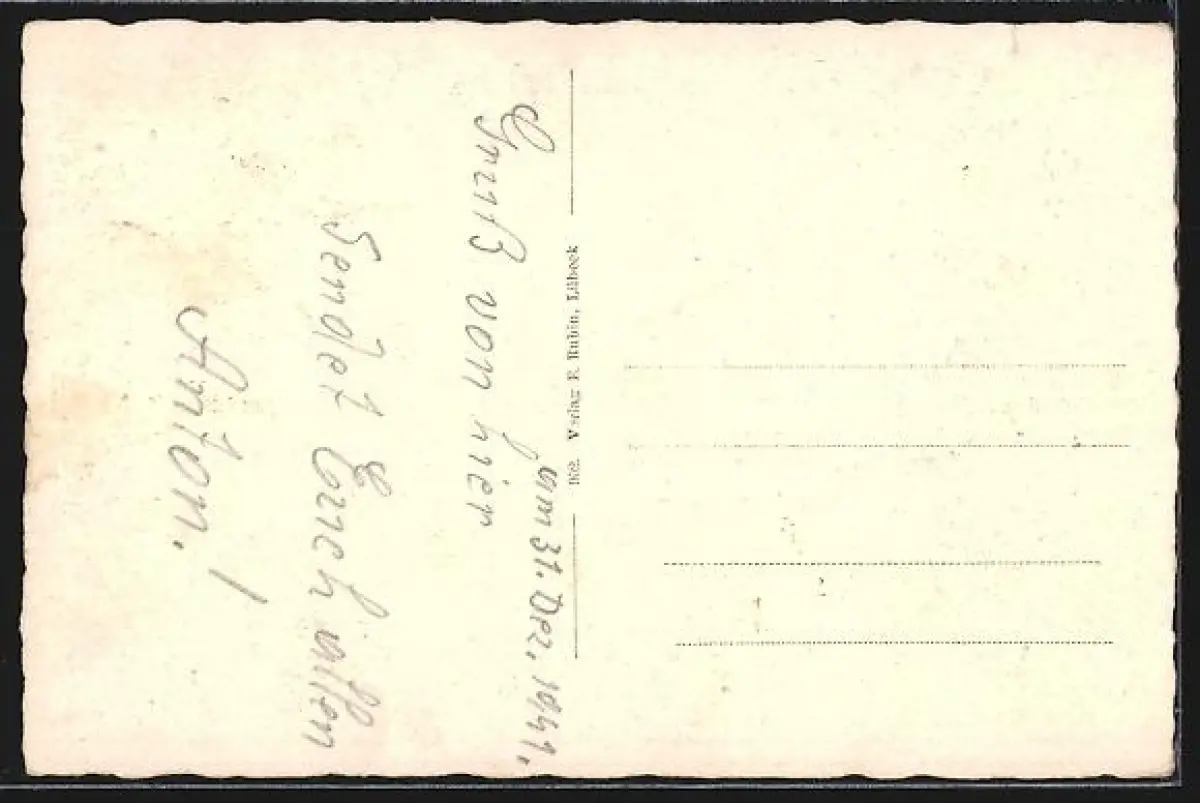 am 31. Dez. 1941.
Gruß von hier
sendet Euch allen
Anton.
Verlag R. Rubin, Lübeck